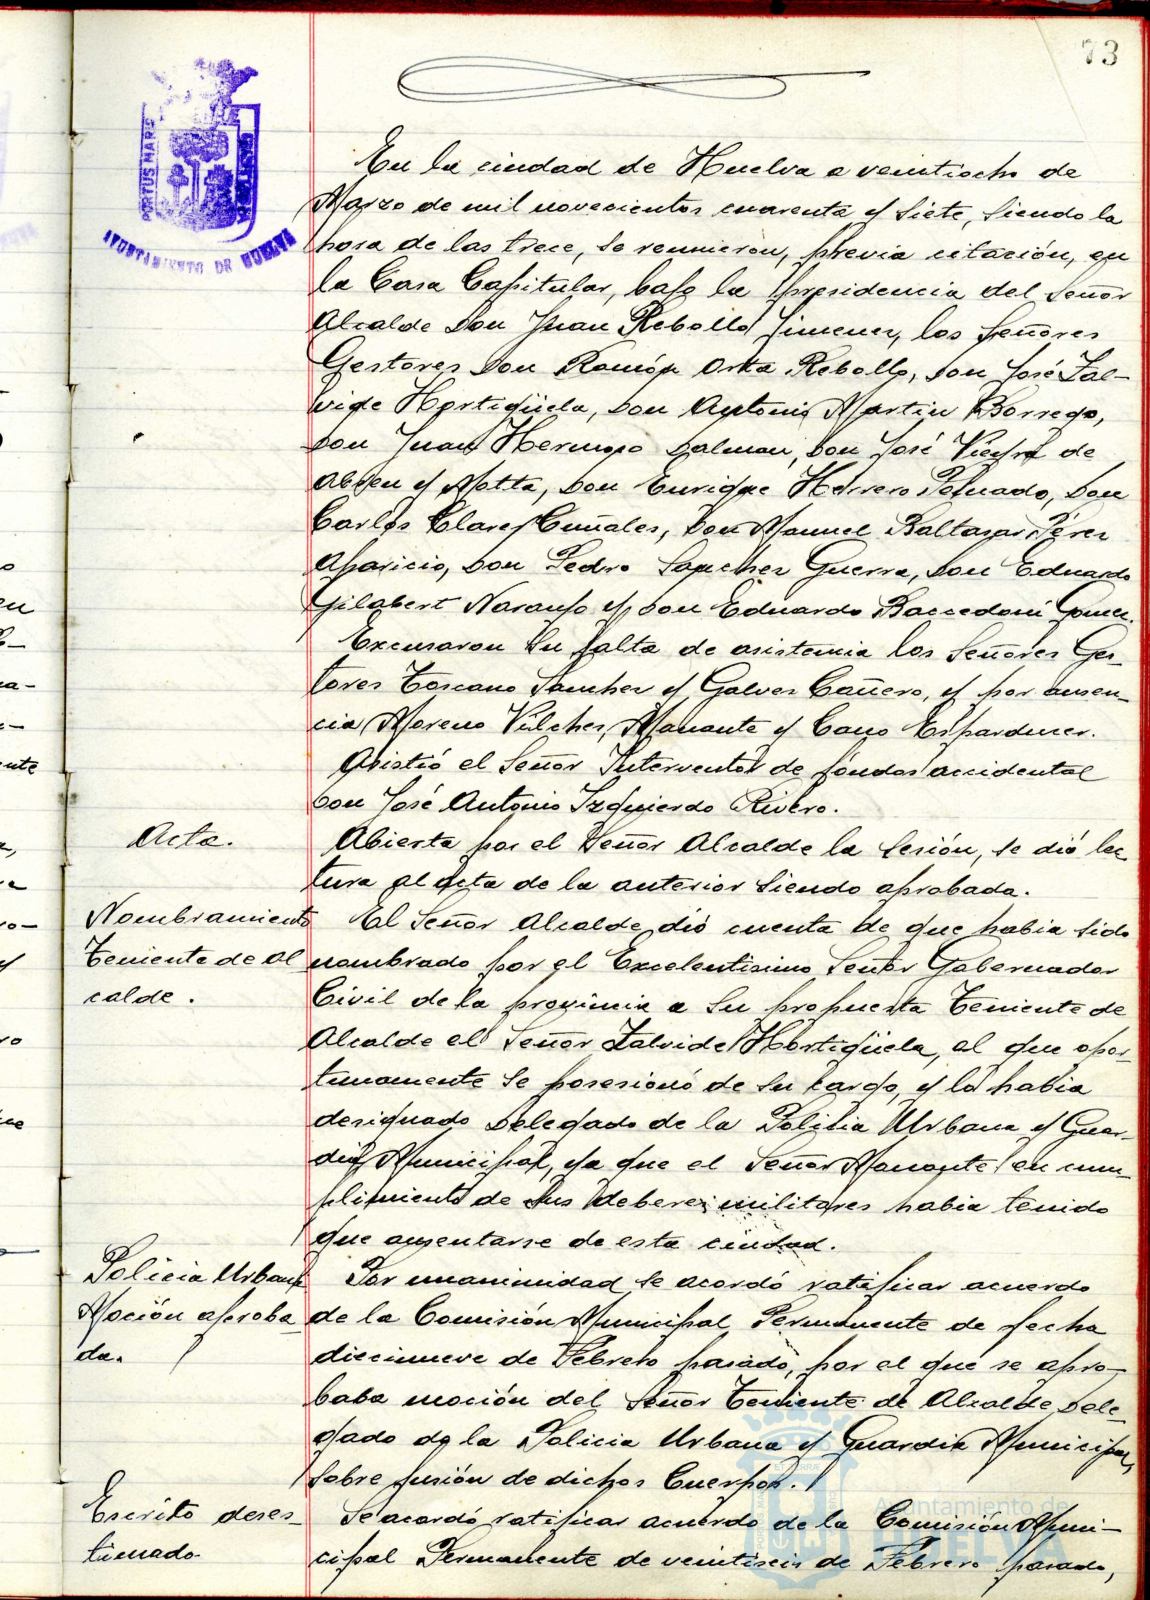 73
PORTUS MARIS
AYUNTAMIENTO DE HUELVA
En la ciudad de Huelva a veintiocho de
Marzo de mil novecientos cuarenta y siete, siendo la
hora de las trece, se reunieron, previa citación, en
la Casa Capitular, bajo la presidencia del Señor
Alcalde Don Juan Rebollo Jimenez, los Señores
Gestores Don Ramón Orta Rebollo, Don José Zal-
vide Hortigüela, Don Antonio Martin Borrego,
Don Juan Hermoso Dalmau, Don José Vieyra de
Abreu y Motta, Don Enrique Herrero Peinado, Don
Carlos Clarez Cuñales, Don Manuel Baltasar Pérez
Aparicio, Don Pedro Sanchez Guerra, Don Eduardo
Gilabert Naranjo y Don Eduardo Baccedoni Gomez.
Excusaron su falta de asistencia los Señores Ges-
tores Toscano Sanchez y Galvez Cañero, y por ausen-
cia Moreno Vilchez, Manante y Cano
Asistió el Señor Interventor de fondos accidental
Don José Antonio Izquierdo Rivero.
Acta.
Abierta por el Señor Alcalde la sesión, se dió lec
tura al acta de la anterior siendo aprobada.
Nombramiento
Teniente de Al
calde.
El Señor Alcalde dió cuenta de que habia sido
nombrado por el Excelentisimo Señor Gobernador
Civil de la provincia a su propuesta Teniente de
Alcalde el Señor Zalvide Hortigüela, al que opor-
tunamente se posesionó de su cargo, y lo habia
designado Delegado de la Policia Urbana y Guar-
dia Municipal, ya que el Señor Manante en cum-
plimiento de sus deberes militares habia tenido
que ausentarse de esta ciudad.
Policia Urbana
Moción aproba-
da.
Por unanimidad se acordó ratificar acuerdo
de la Comisión Municipal Permanente de fecha
diecinueve de Febrero pasado, por el que se apro-
baba moción del Señor Teniente de Alcalde Dele-
gado de la Policia Urbana y Guardia Municipal,
sobre fusión de dichos Cuerpos.
Escrito deses-
timado
Se acordó ratificar acuerdo de la Comisión Muni-
cipal Permanente de veintiseis de Febrero pasado,
Ayuntamiento de
HUELVA